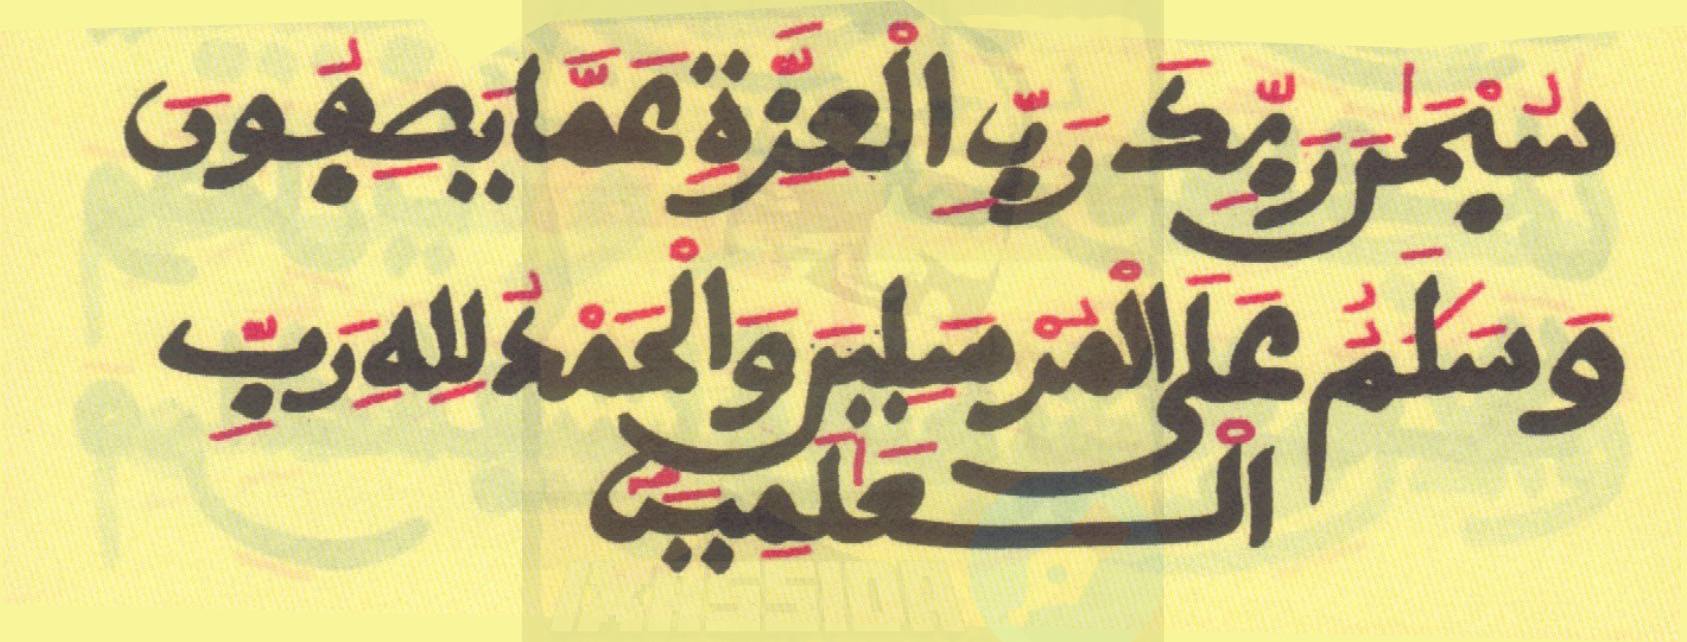 سُبْحَٰنَ رَبِّكَ رَبِّ الْعِزَّةِ عَمَّا يَصِفُونَ
وَسَلَٰمٌ عَلَى الْمُرْسَلِينَ وَالْحَمْدُ لِلهِ رَبِّ
الْعَٰلَمِينَ